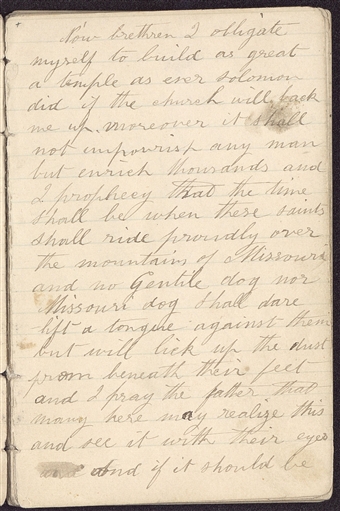 Now brethren I obligate
myself to build as great
a temple as ever solomon
did if the church will back
me up. moreover it shall
not impovrish any man
but enrich thousands and
I prophecy that the time
shall be when these saints
shall ride proudly over
the mountains of Missouri
and no Gentile dog nor
Missouri dog shall dare
lift a tongue against them
but will lick up the dust
from beneath their feet
and I pray the father that
many here may realize this
and see it with their eyes
and if it should be